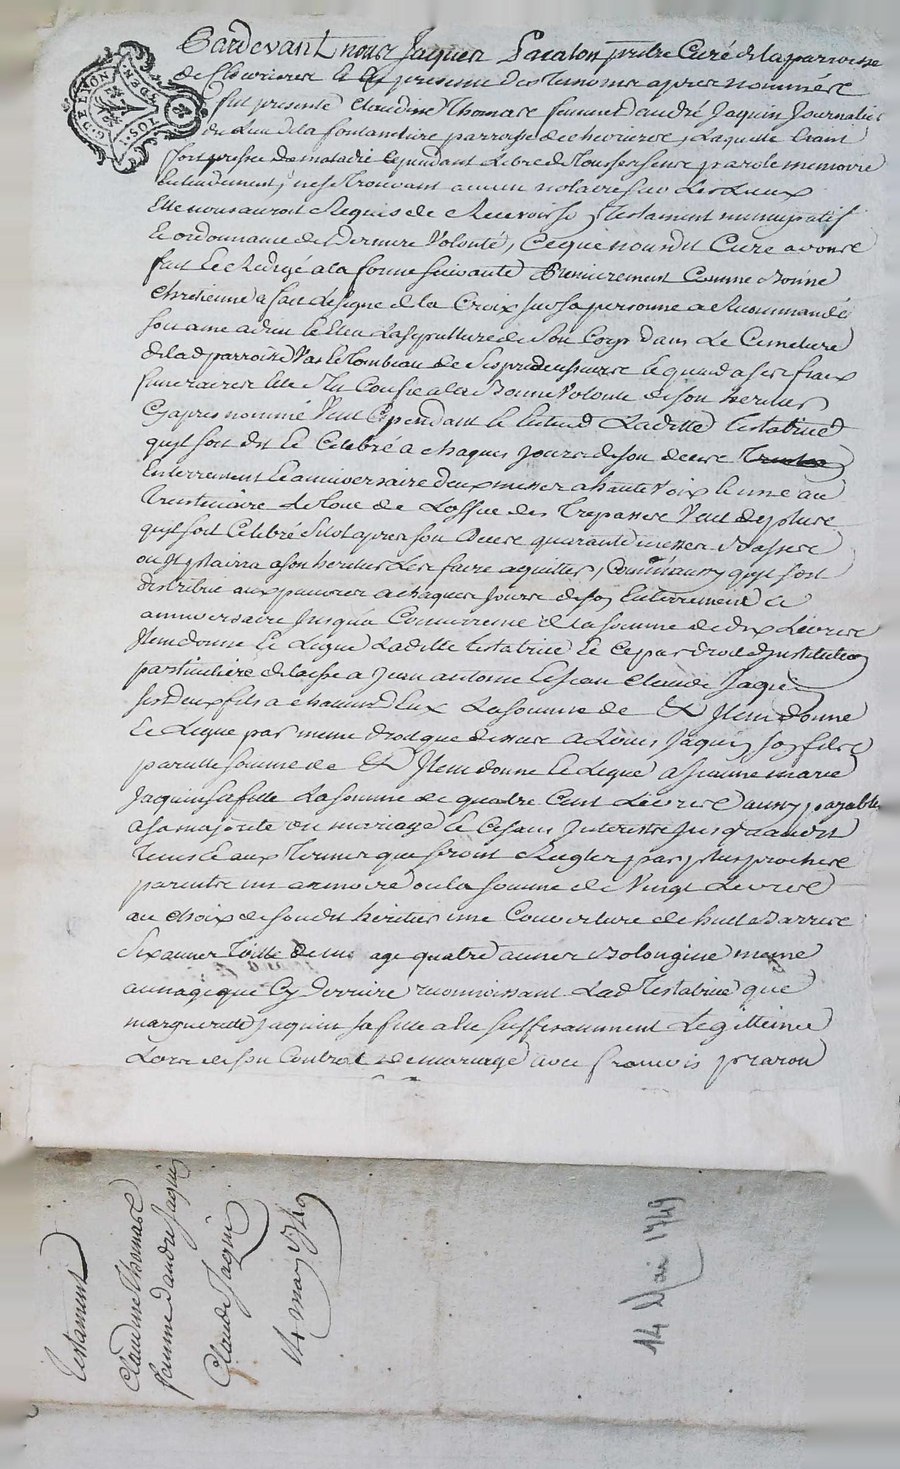 Pardevant nous Jaques Pacalon prestre Curé de la parroisse
de Chevrieres et en presence des temoins apres nommés
fut presente Claudine Thomase femme d'andré Jaquin Journalier
du Lieu de la fontandiere parroisse de chevrieres, Laquelle Etant
fort presse de maladie Cependant Libre de tous ses sens parole memoire
Entendement, ne se trouvant aucun notaire sur Les Lieux
Elle nous auroit Requis de Recevoir so testament nuncupatif
Et ordonnance de Derniere Volonté, Ce que nous dit Curé avons
fait et Redigé a la forme suivante Premierement Comme Bonne
Chretienne a fait le signe de la Croix sur sa personne a Recommandé
son ame a dieu et Elu La sepulture de son Corps dans Le Cimetiere
de lad parroisse Vas et tombeau de ses predecesseurs et quand a ses fraix
funeraires Elle s'en Confie a la Bonne Volonté de son heritier
Cy apres nommé Veut Cependant et Entend Laditte testatrice
qu'yl soit dit et Celebré a chaques jours de son deces
Enterrement et anniversaire deux messes a haute Voix et une au
trentenaire et tout de L'office des trepasses Veut de plus
qu'yl soit Celebré sitot apres son Deces quarante messes Basses
ou Jl plaira a son heritier Les faire aquitter, Comme aussy qu'yl soit
distribué aux pauvres a chaques jours de so Enterrement et
anniversaire jusqu'a Concurrence de la somme de dix Livres
Jtem donne et Legue Laditte testatrice et Ce par droit d'Jnstitution
particuliere delaisse a Jean antoine et Jean Claude Jaquin
ses deux fils a chacun d'Eux La somme de & Jtem donne
et Legue par meme droit que dessus a Loüis Jaquin son fils
pareille somme de & Jtem donne et Legue a Jeanne marie
Jaquin sa fille La somme de quatre Cent Livres aussy payable
a sa majorité ou mariage et Ce sans Jnterests jusqu'audit
tems et aux termes que seront Reglés par plus proches
parents une armoire ou la somme de Vingt Livres
au choix de sondit heritier une Couverture de
Six aunes toille de me age quatre aunes Bolongine meme
aunage que Cy derriere reconnoissant Lad testatrice que
marguerite Jaquin sa fille a Ete suffisamment Legittimée
Lors de son Contrat de mariage avec francois
G. DE LYON
Testament
Claudine Thomase
femme d'andre Jaquin
Claude Jaquin
14 may 1749
14 Mai 1749